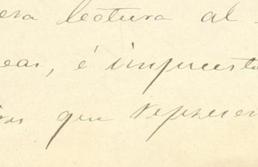 era lectura al
ear, é impuesto
que represen